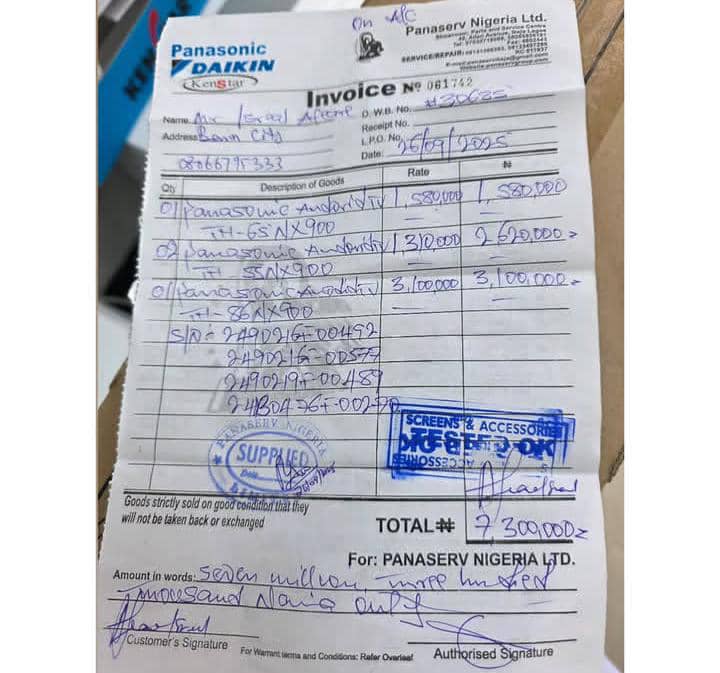 On A/C
Panaserv Nigeria Ltd.
Panasonic
DAIKIN
KenStar
SERVICE/REPAIR:
Invoice Nº 061742
Name Mr
O. W.B. No. #30685
Address Benin City
Receipt No.
L.P.O. No.
08066795333
Date: 26/09/2025
Qty Description of Goods Rate ₦
01 Panasonic Android TV 1,580,000 1,580,000
TH-65NX900
02 Panasonic Android TV 1,310,000 2,620,000
TH-55NX900
01 Panasonic Android TV 3,100,000 3,100,000
TH-86NX900
S/N:- 249021G-00492
249021G-00577
2490219F-00489
PANASERV NIGERIA
SUPPLIED
SCREENS & ACCESSORIES
TESTED OK
Goods strictly sold on good condition that they
will not be taken back or exchanged
TOTAL ₦ 7,300,000
For: PANASERV NIGERIA LTD.
Amount in words: Seven million, Three hundred
Thousand Naira Only
Customer's Signature
For Warrant terms and Conditions: Refer Overleaf
Authorised Signature